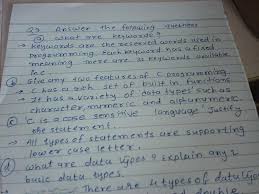 Q3 Answer the following questions
a) What are keywords?
→ Keywords are the reserved words used in
programming. Each keyword has a fixed
meaning. There are 32 keywords available
in c.
b) Give any two features of C programming.
→ C has a rich set of built in functions
→ It has a variety of data types such as
character, numeric and alphanumeric.
c) C is a case sensitive language Justify
the statement.
→ All types of statements are supporting
lower case letter.
d) what are data types? explain any 2
basic data types.
→ There are 4 types of data types
double